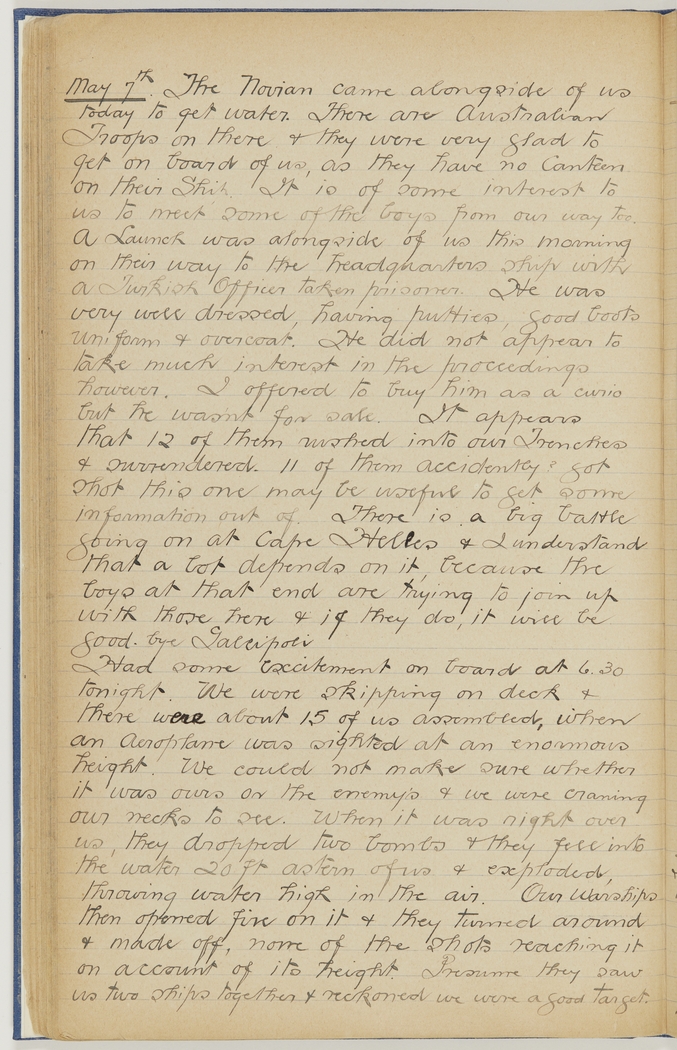 May 7th. The Novian came alongside of us
today to get water. There are Australian
Troops on there & they were very glad to
get on board of us, as they have no Canteen
on their Ship. It is of some interest to
us to meet some of the boys from our way too.
A Launch was alongside of us this morning
on their way to the headquarters ship with
a Turkish Officer taken prisoner. He was
very well dressed, having putties, good boots
uniform & overcoat. He did not appear to
take much interest in the proceedings
however. I offered to buy him as a curio
but he wasnt for sale. It appears
that 12 of them rushed into our Trenches
& surrendered. 11 of them accidently? got
shot this one may be useful to get some
information out of. There is a big battle
going on at Cape Helles & I understand
that a lot depends on it, because the
boys at that end are trying to join up
with those here & if they do, it will be
good-bye Gallipoli
Had some excitement on board at 6.30
tonight. We were skipping on deck &
there were about 15 of us assembled, when
an Aeroplane was sighted at an enormous
height. We could not make sure whether
it was ours or the enemys & we were craning
our necks to see. When it was right over
us, they dropped two bombs & they fell into
the water 20 ft astern of us & exploded,
throwing water high in the air. Our Warships
then opened fire on it & they turned around
& made off, none of the shots reaching it
on account of its height. Presume they saw
us two ships together & reckoned we were a good target.